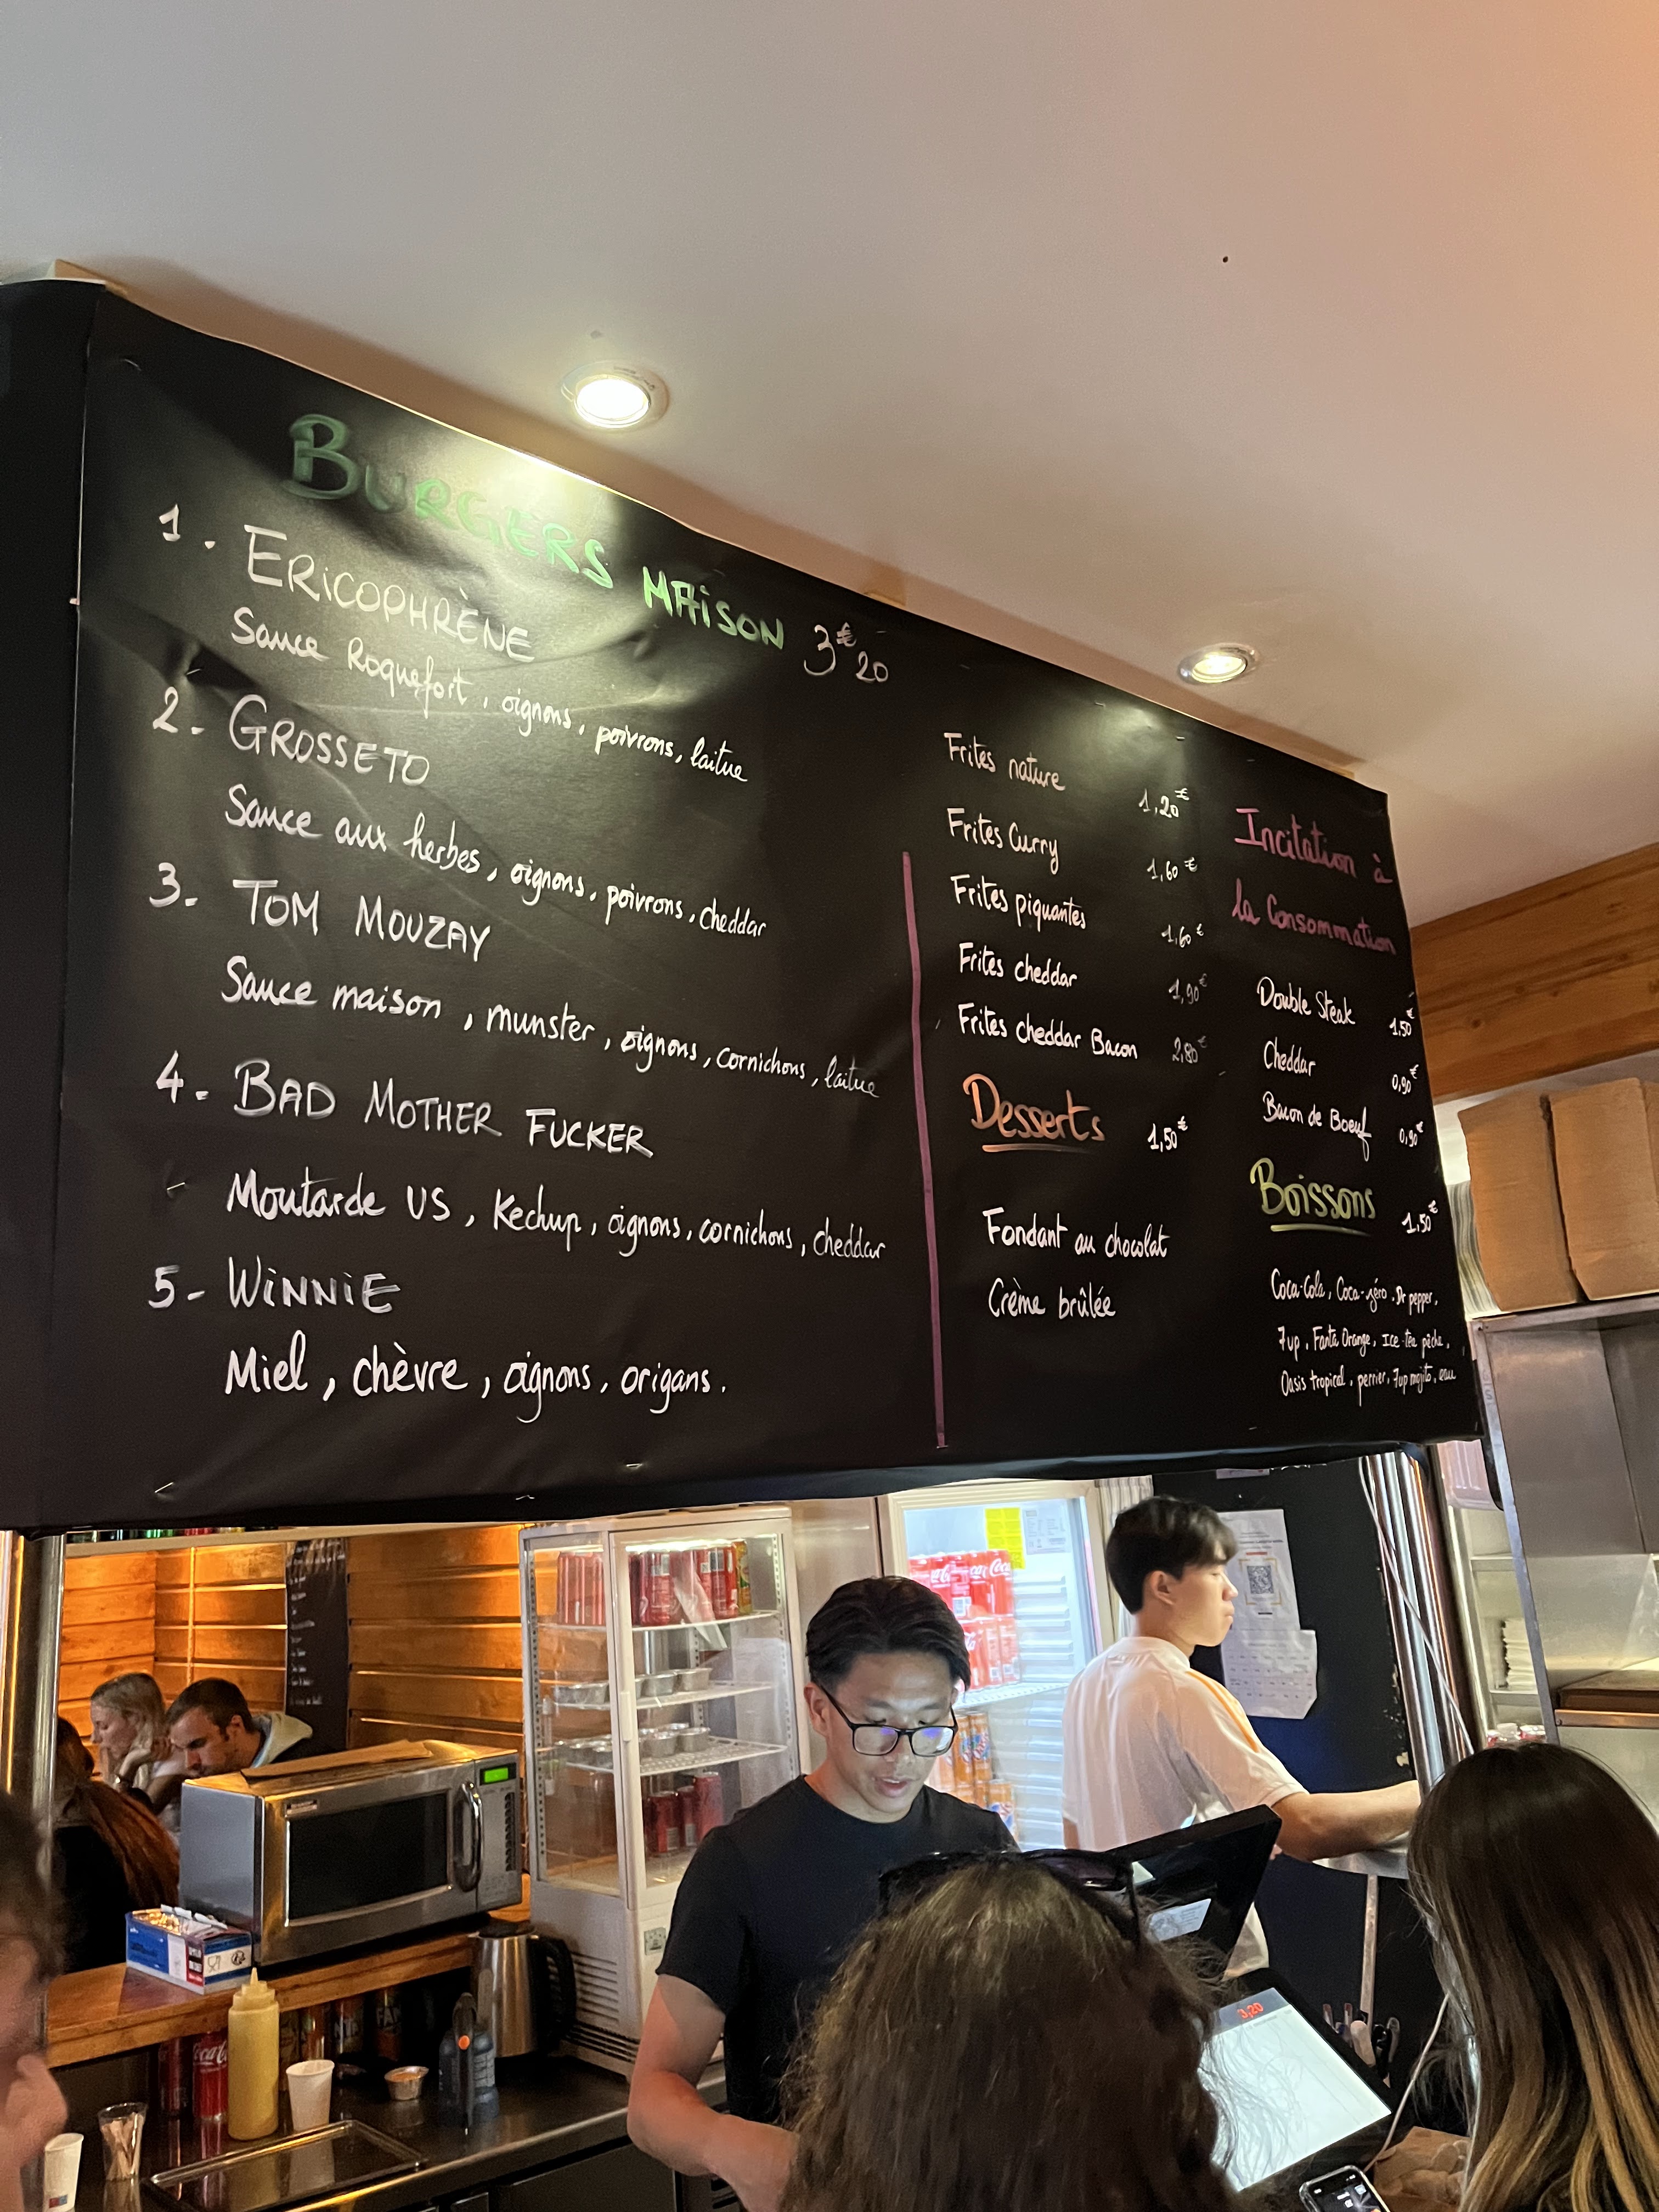 BURGERS MAISON 3€20
1. ERICOPHRÈNE
Sauce Roquefort, oignons, poivrons, laitue
2. GROSSETO
Sauce aux herbes, oignons, poivrons, cheddar
3. TOM MOUZAY
Sauce maison, munster, oignons, cornichons, laitue
4. BAD MOTHER FUCKER
Moutarde US, Kechup, oignons, cornichons, cheddar
5- WINNIE
Miel, chèvre, oignons, origans.
Frites nature 1,20€
Frites Curry 1,60€
Frites piquantes 1,60€
Frites cheddar 1,90€
Frites cheddar Bacon 2,80€
Desserts 1,50€
Fondant au chocolat
Crème brûlée
Incitation à
la Consommation
Double Steak 1,50€
Cheddar 0,90€
Bacon de Boeuf 0,90€
Boissons 1,50€
Coca-Cola, Coca-zéro, Dr pepper,
7up, Fanta Orange, Ice-tea pêche,
Oasis tropical, perrier, 7up mojito, eau
Coca-Cola
3,20